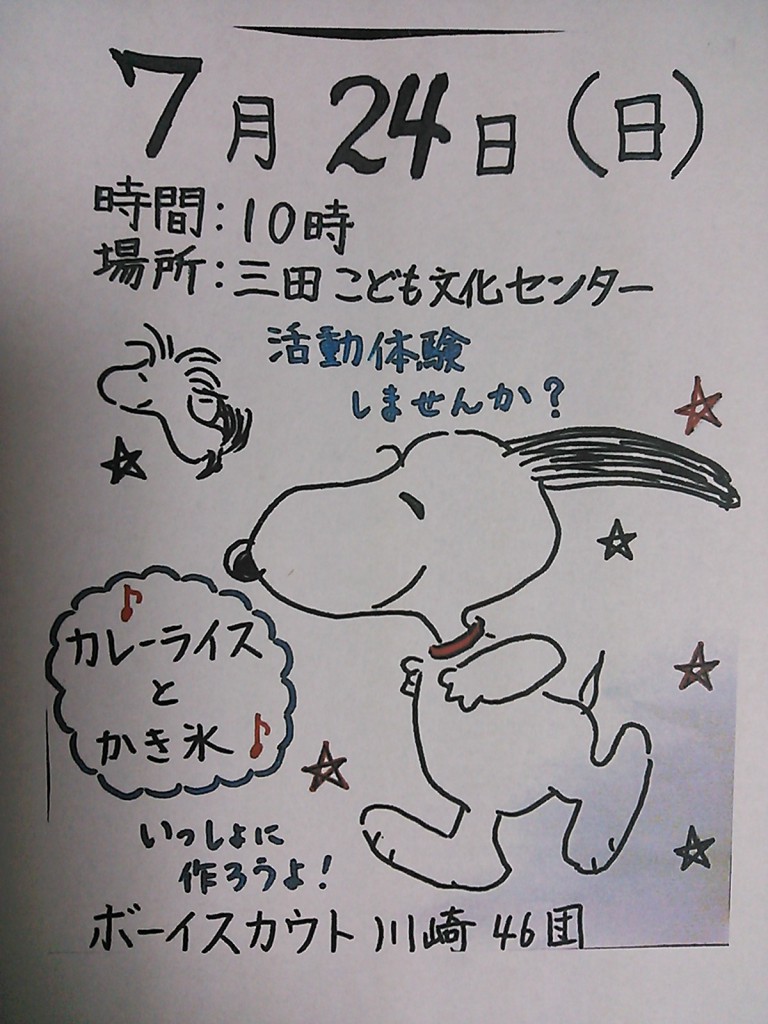 7月24日(日)
時間:10時
場所:三田こども文化センター
活動体験
しませんか?
カレーライス
と
かき氷
いっしょに
作ろうよ!
ボーイスカウト川崎46団